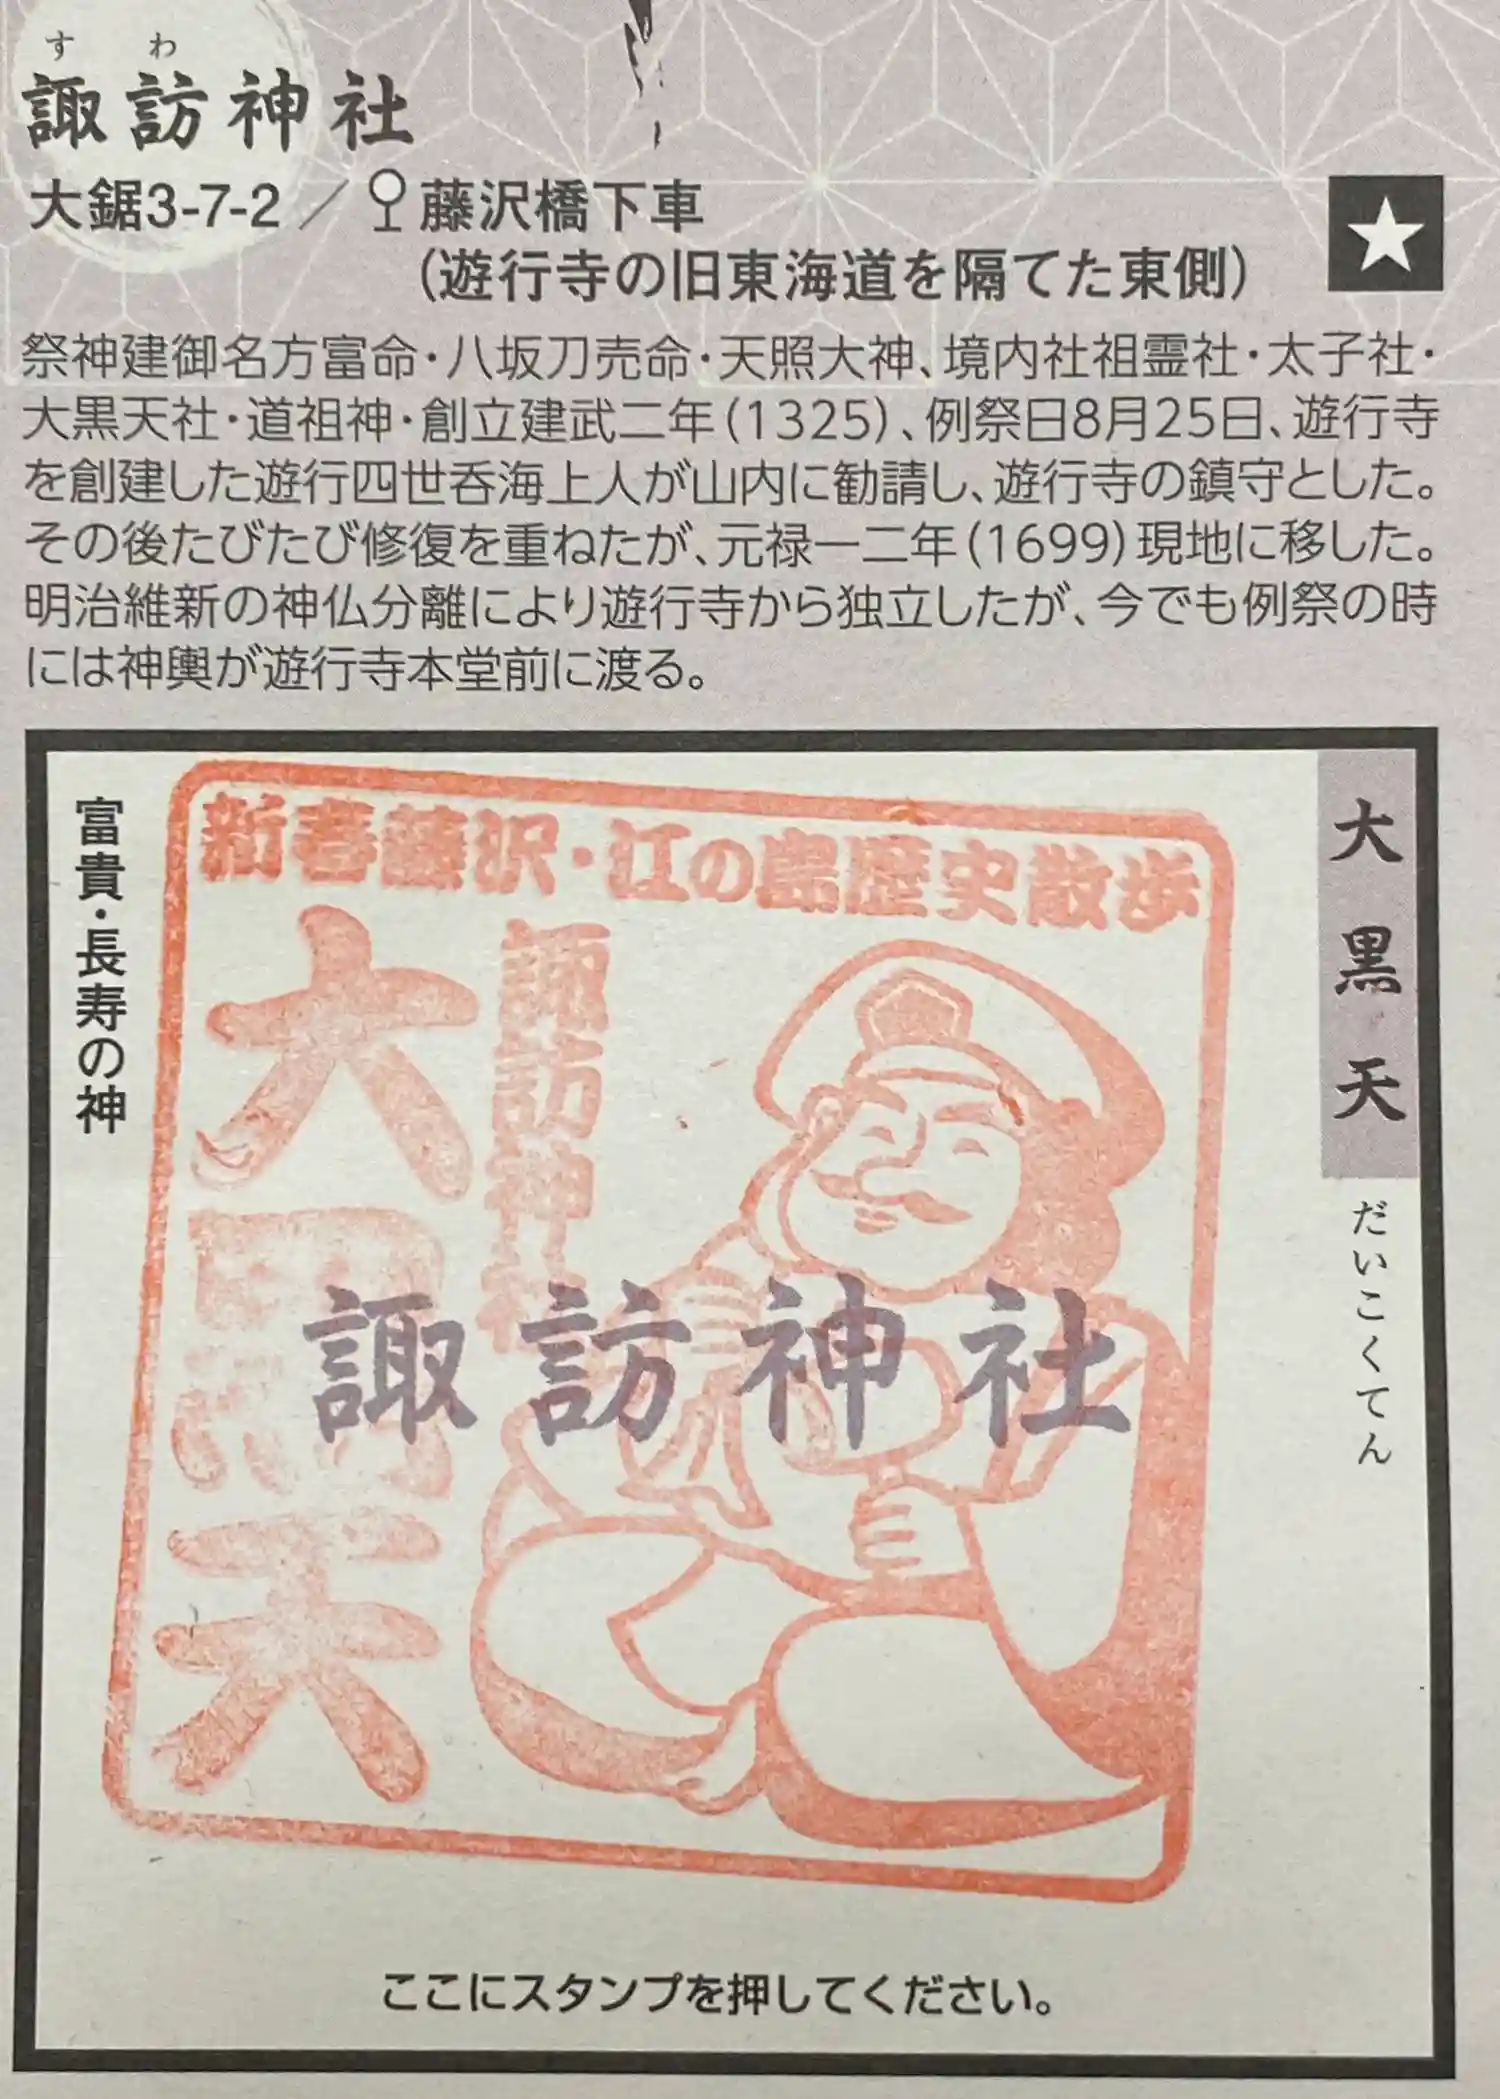 すわ
諏訪神社
大鋸3-7-2／藤沢橋下車
(遊行寺の旧東海道を隔てた東側)
★
祭神建御名方富命・八坂刀売命・天照大神、境内社祖霊社・太子社・
大黒天社・道祖神・創立建武二年(1325)、例祭日8月25日、遊行寺
を創建した遊行四世呑海上人が山内に勧請し、遊行寺の鎮守とした。
その後たびたび修復を重ねたが、元禄一二年(1699)現地に移した。
明治維新の神仏分離により遊行寺から独立したが、今でも例祭の時
には神輿が遊行寺本堂前に渡る。
大黒天
だいこくてん
富貴・長寿の神
新春藤沢・江の島歴史散歩
諏訪神社
大黒天
諏訪神社
ここにスタンプを押してください。